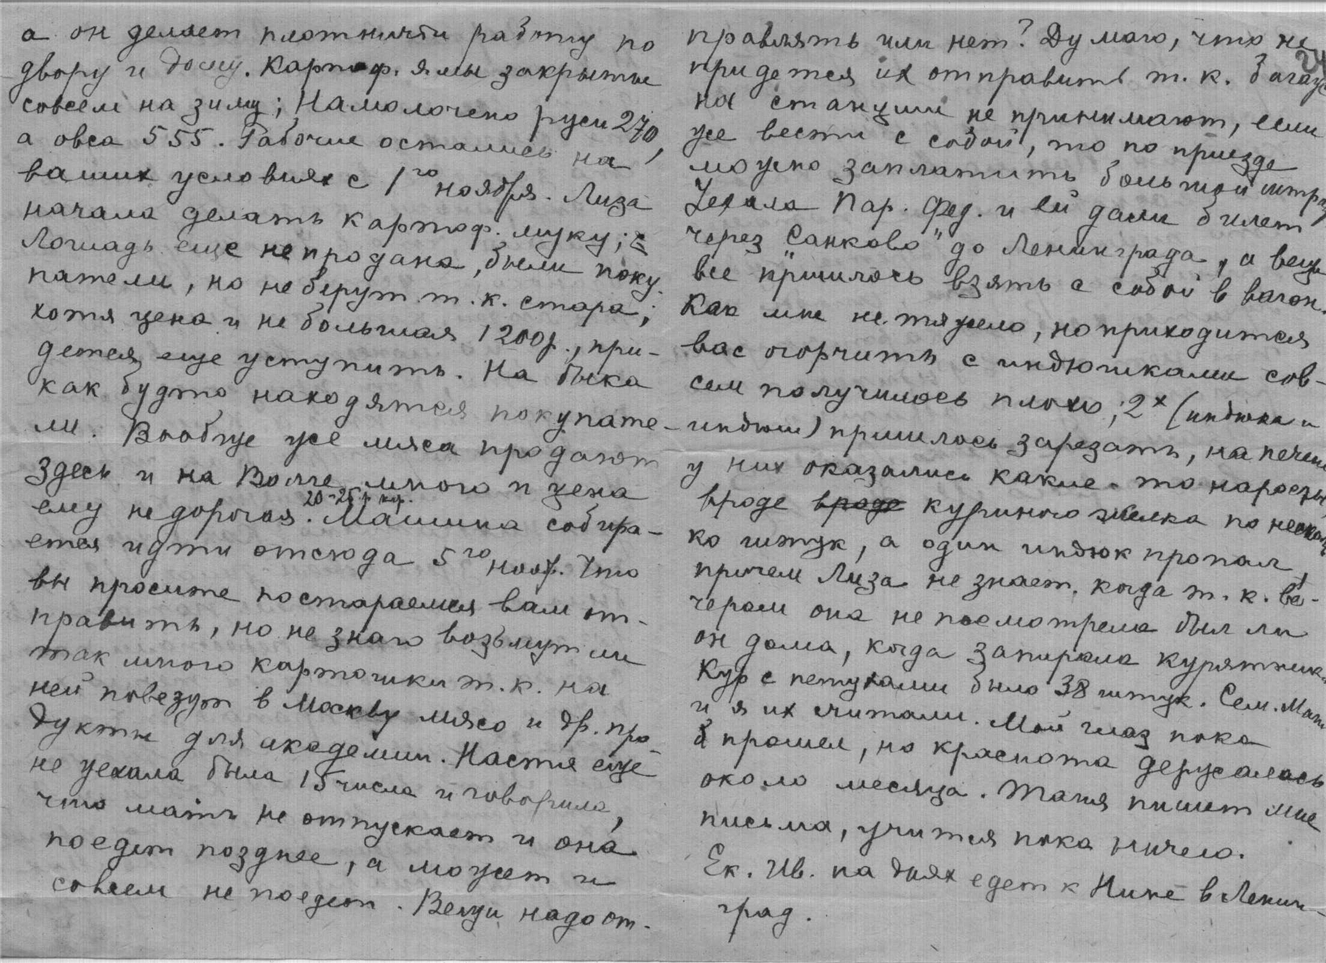 а он делает плотничьи работы по
двору и дому. Картоф. ямы закрыты
совсем на зиму; Намолочено ржи 270,
а овса 555. Рабочие остались на
ваших условиях с 1го ноября. Лиза
начала делать картоф. муку;
Лошадь еще не продана, были поку
патели, но не берут т. к. стара;
хотя цена и не большая 1200р., при-
дется еще уступить. На быка
как будто находятся покупате-
ли. Вообще уже мяса продают
здесь и на Волге много и цена
20-25 р. кг.
ему недорогая. Машина собира-
ется идти отсюда 5го нояб. Что
вы просите постараемся вам от-
править, но не знаю возьмут ли
так много картошки т. к. на
ней повезут в Москву мясо и др. про-
дукты для академии. Настя еще
не уехала была 15 числа и говорила,
что мать не отпускает и она
поедет позднее, а может и
совсем не поедет. Вещи надо от-
правлять или нет? Думаю, что не
24
придется их отправить т. к. багаж
на станции не принимают, если
уже вести с собой, то по приезде
можно заплатить большой штраф
Уехала Пар. Фед. и ей дали билет
через "Санково" до Ленинграда, а вещи
все пришлось взять с собой в вагон.
Как мне не тяжело, но приходится
вас огорчить с индюшками сов-
сем получилось плохо; 2х (индюка и
индюш) пришлось зарезать, на печени
у них оказались какие-то наросты
вроде вроде куриного желка по несколь
ко штук, а один индюк пропал,
причем Лиза не знает, когда т. к. ве-
чером она не посмотрела был ли
он дома, когда запирала курятник.
Кур с петухами было 38 штук. Сем. Мат.
и я их считали. Мой глаз пока
прошел, но краснота держалась
около месяца. Таня пишет мне
письма, учится пока ничего.
Ек. Ив. на днях едет к Нине в Ленин-
град.